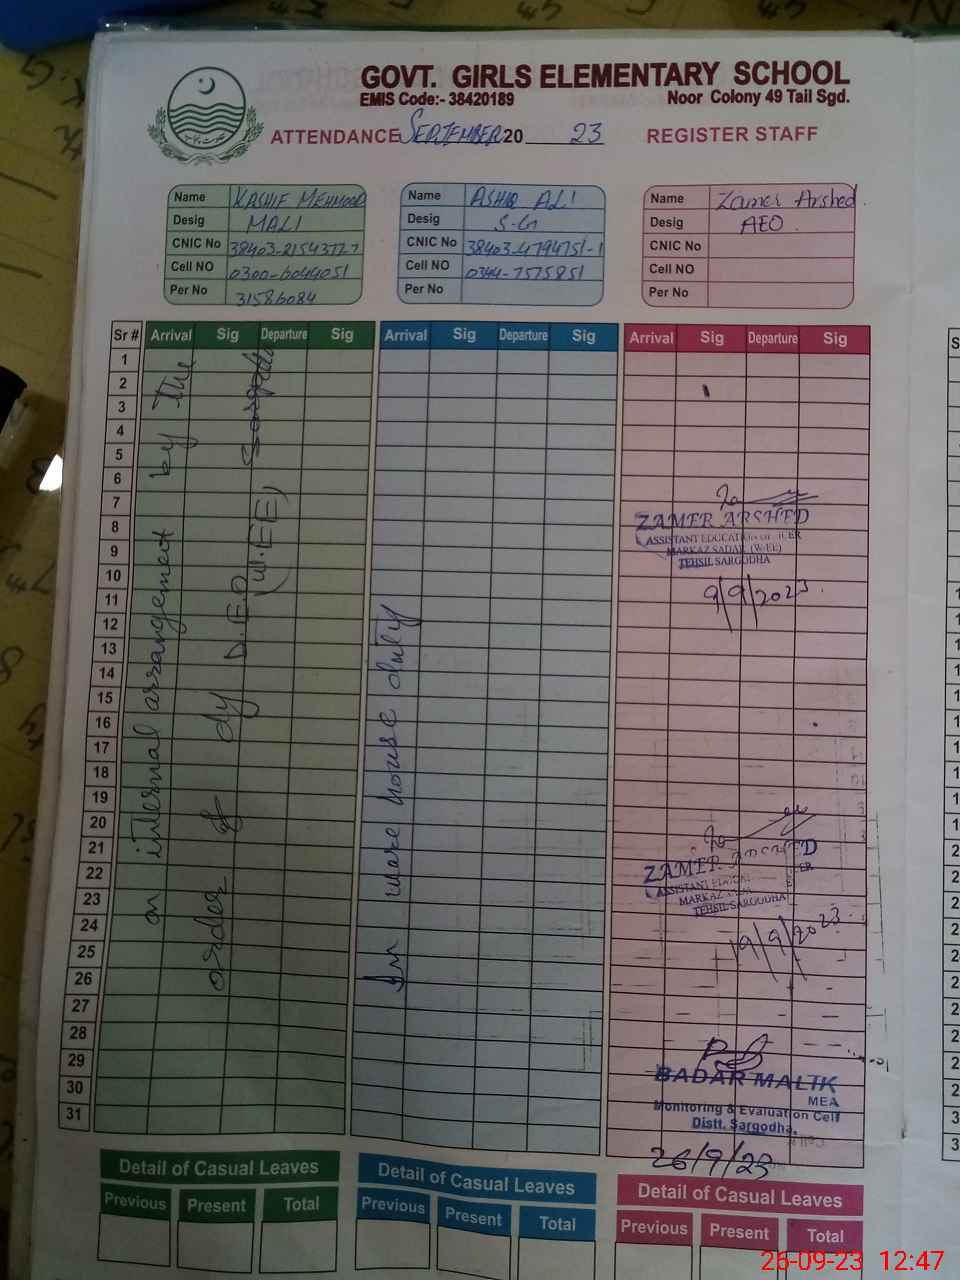 GOVT. GIRLS ELEMENTARY SCHOOL
EMIS Code:- 38420189 Noor Colony 49 Tail Sgd.
ATTENDANCE SEPTEMBER 20 23 REGISTER STAFF
Name KASHIF MEHMOOD
Desig MALI
CNIC No 38403-2154377-7
Cell NO 0300-6044051
Per No 31586084
Name ASHIQ ALI
Desig S-G
CNIC No 38403-4794751-1
Cell NO 0344-7575851
Per No
Name Zamer Arshed
Desig AEO
CNIC No
Cell NO
Per No
Sr # Arrival Sig Departure Sig Arrival Sig Departure Sig Arrival Sig Departure Sig
1
2
3
4
5
6
7
8
9
10
11
12
13
14
15
16
17
18
19
20
21
22
23
24
25
26
27
28
29
30
31
on internal arrangement by the
order of dy D.E.O (W.EE) Sargodha
on ware house duty
ZAMER ARSHED
ASSISTANT EDUCATION OFFICER
MARKAZ SADAR (W-EE)
TEHSIL SARGODHA
9/9/2023
ZAMER ARSHED
ASSISTANT
MARKAZ
TEHSIL SARGODHA
19/9/2023
BADAR MALIK
MEA
Monitoring & Evaluation Cell
Distt. Sargodha.
26/9/23
Detail of Casual Leaves Detail of Casual Leaves Detail of Casual Leaves
Previous Present Total Previous Present Total Previous Present Total
26-09-23 12:47